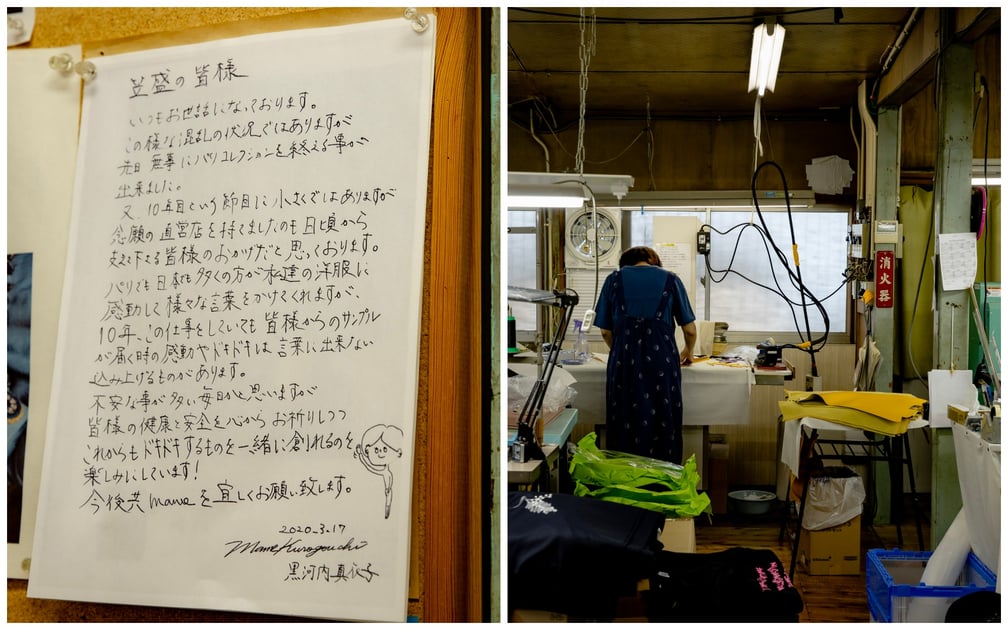 笠盛の皆様
いつもお世話になっております。
この様な混乱の状況ではありますが
先日 無事にパリコレクションを終える事が
出来ました。
又、10年目という節目に小さくではありますが
念願の直営店を持てましたのも日頃から
支えて下さる皆様のおかげだと思っております。
パリでも日本でも多くの方が私達の洋服に
感動して様々な言葉をかけてくれますが、
10年、この仕事をしていても皆様からのサンプル
が届く時の感動やドキドキは言葉に出来ない
込み上げるものがあります。
不安な事が多い毎日かと思いますが
皆様の健康と安全を心からお祈りしつつ
これからもドキドキするものを一緒に創れるのを
楽しみにしています!
今後共mameを宜しくお願い致します。
2020.3.17
Mame Kurogouchi
黒河内真衣子
消火器